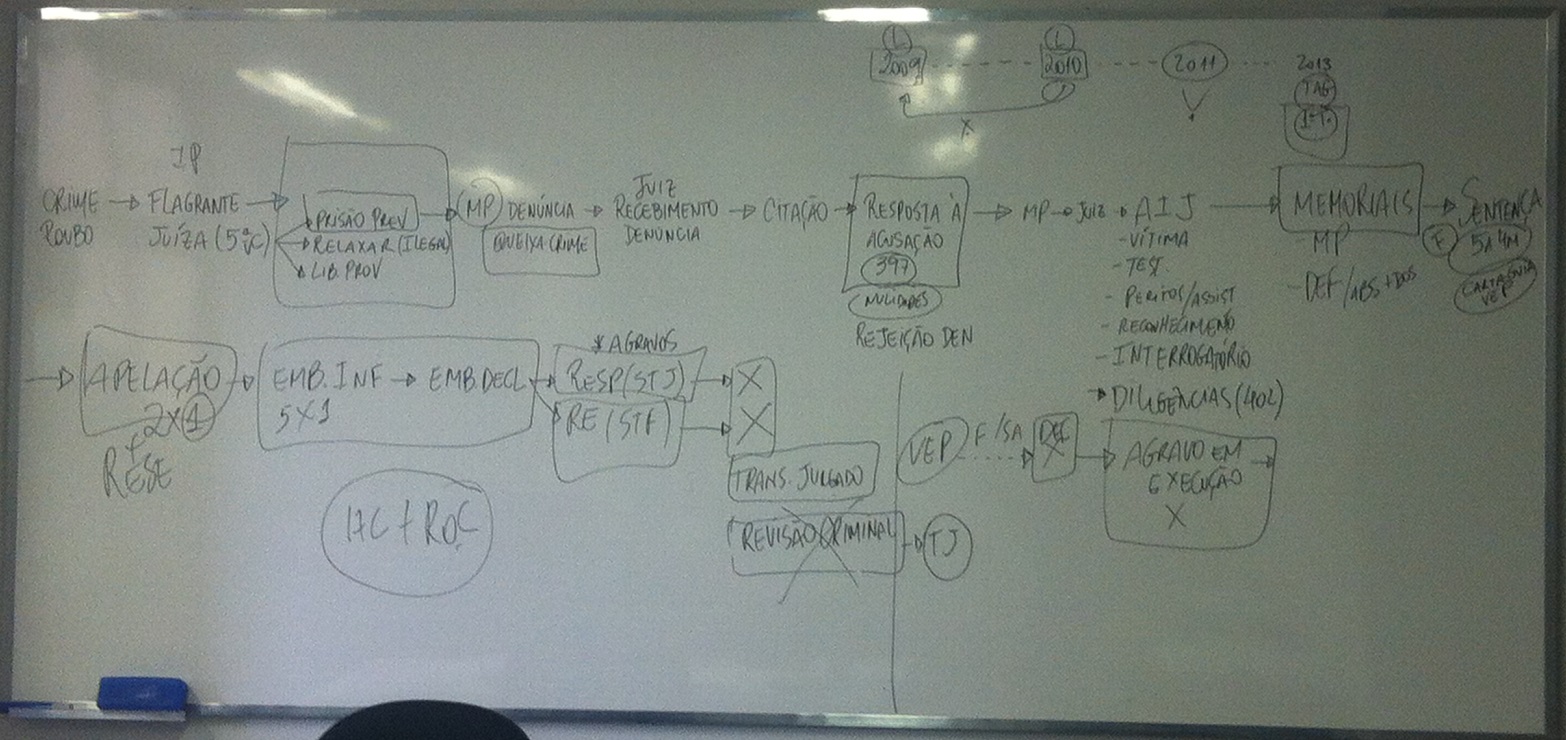 L L
2009 2010 2011 2013
X TAG
IP
CRIME → FLAGRANTE → MP DENÚNCIA → JUIZ RECEBIMENTO → CITAÇÃO → RESPOSTA À → MP → JUIZ → AIJ → MEMORIAIS → SENTENÇA
ROUBO JUÍZA (5ªVC)
PRISÃO PREV
RELAXAR (ILEGAL)
LIB. PROV
QUEIXA CRIME
DENÚNCIA
ACUSAÇÃO
397
NULIDADES
REJEIÇÃO DEN
- VÍTIMA
- TEST.
- PERITOS/ASSIST
- RECONHECIMENTO
- INTERROGATÓRIO
→ DILIGÊNCIAS (402)
- MP
- DEF/ABS + DOS
F 5A 4M
VEP
→ APELAÇÃO → EMB. INF → EMB. DECL → RESP (STJ) → X
2X1
+
RESE
5X1
* AGRAVOS
RE (STF) → X
TRANS. JULGADO
REVISÃO CRIMINAL → TJ
HC + ROC
VEP F/SA DEC → AGRAVO EM
EXECUÇÃO
X